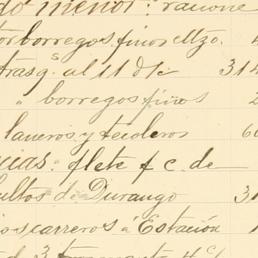 do menor: racione
tor borregos finos Mzo.
trasqs. al 11 d/c 314
" borregos finos 2
laneros y tecoleros 60
cias. flete f c. de
ultos de Durango 3
os carreros á Estación 1